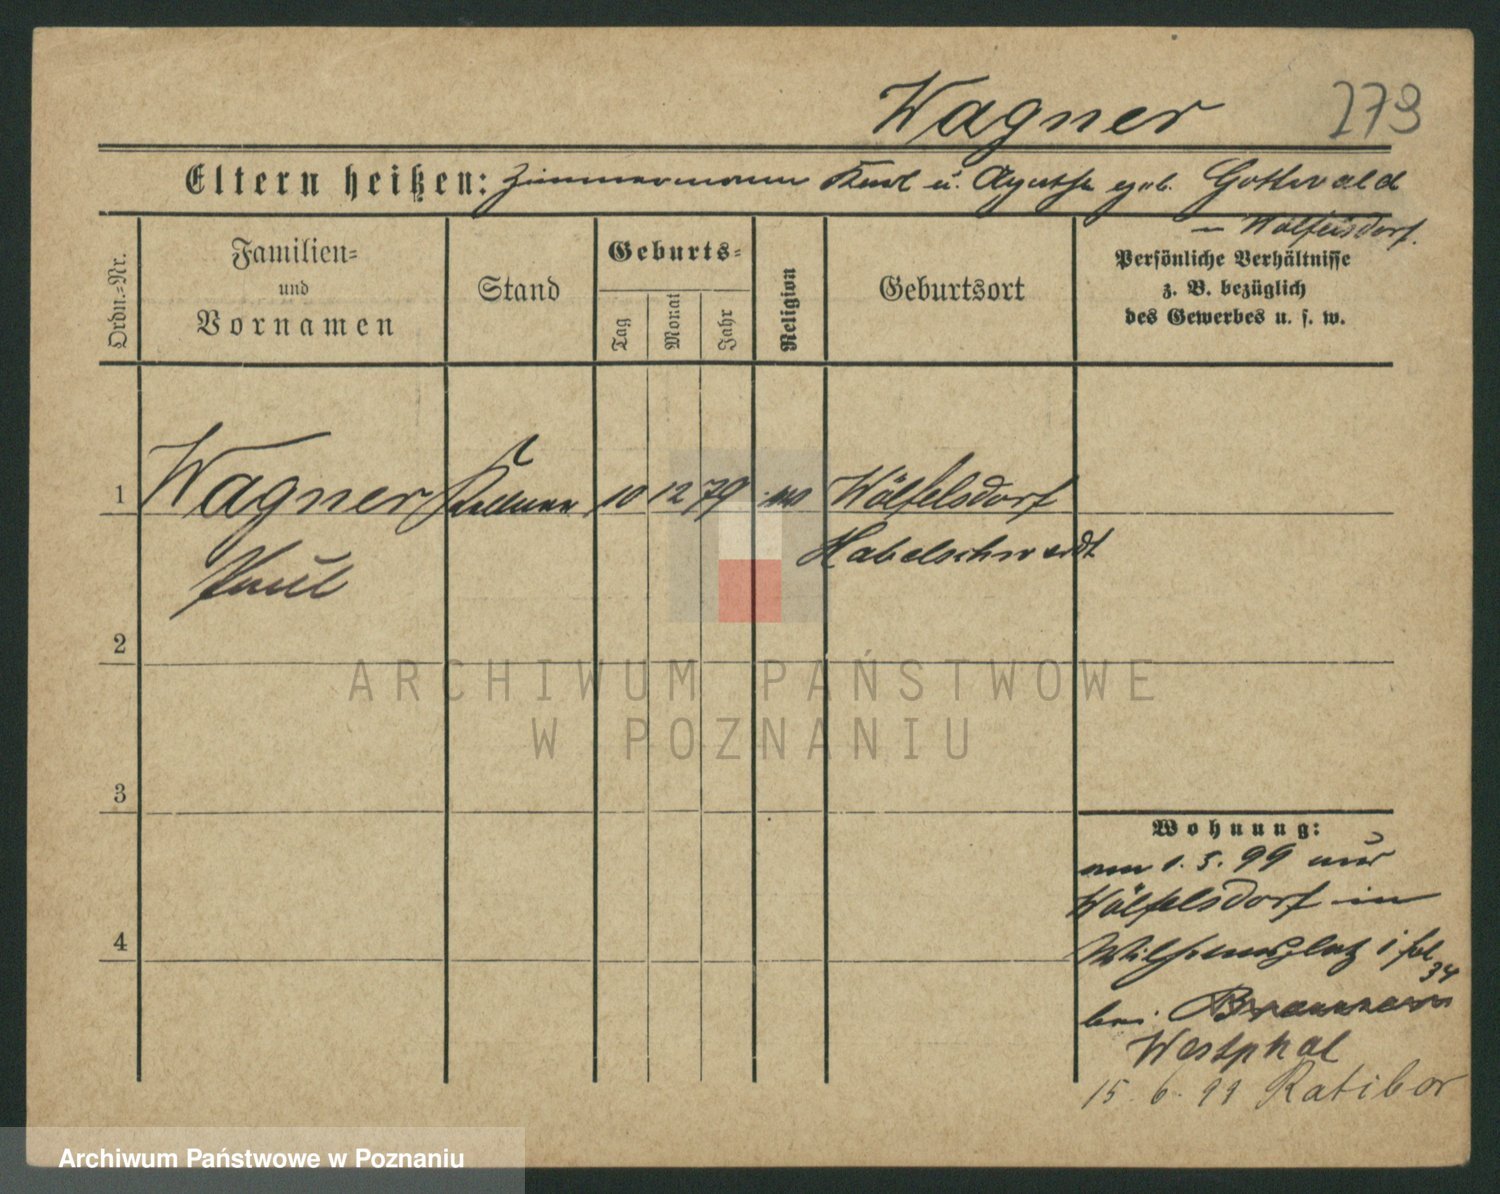 Wagner 273
Eltern heißen: Zimmermann Karl u. Agathe geb. Gottwald
in Wölfelsdorf.
Ordn.-Nr.
Familien-
und
Vornamen
Stand
Geburts-
Tag
Monat
Jahr
Religion
Geburtsort
Persönliche Verhältnisse
z. B. bezüglich
des Gewerbes u. s. w.
1 Wagner Kellner 10 12 79 Wölfelsdorf
Paul Habelschwerdt
2
3
4
Wohnung:
am 1. 5. 99 aus
Wölfelsdorf in
Wilhelmsplatz
bei
Westphal
15. 6. 99 Ratibor
ARCHIWUM PAŃSTWOWE
W POZNANIU
Archiwum Państwowe w Poznaniu